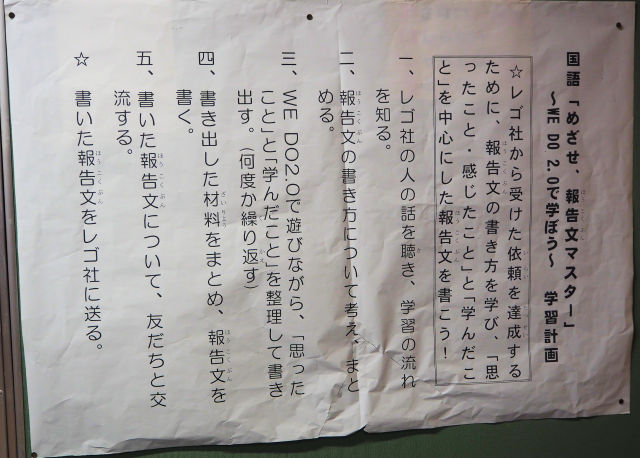 国語「めざせ、報告文マスター」
〜WE DO 2.0で学ぼう〜　学習計画
☆レゴ社から受けた依頼を達成する
ために、報告文の書き方を学び、「思
ったこと・感じたこと」と「学んだこ
と」を中心にした報告文を書こう！
一、レゴ社の人の話を聴き、学習の流れ
を知る。
二、報告文の書き方について考え、まと
める。
三、WE DO2.0で遊びながら、「思った
こと」と「学んだこと」を整理して書き
出す。（何度か繰り返す）
四、書き出した材料をまとめ、報告文を
書く。
五、書いた報告文について、友だちと交
流する。
☆　書いた報告文をレゴ社に送る。